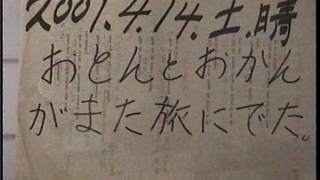 2001.4.14.土.晴
おとんとおかん
がまた旅にでた。